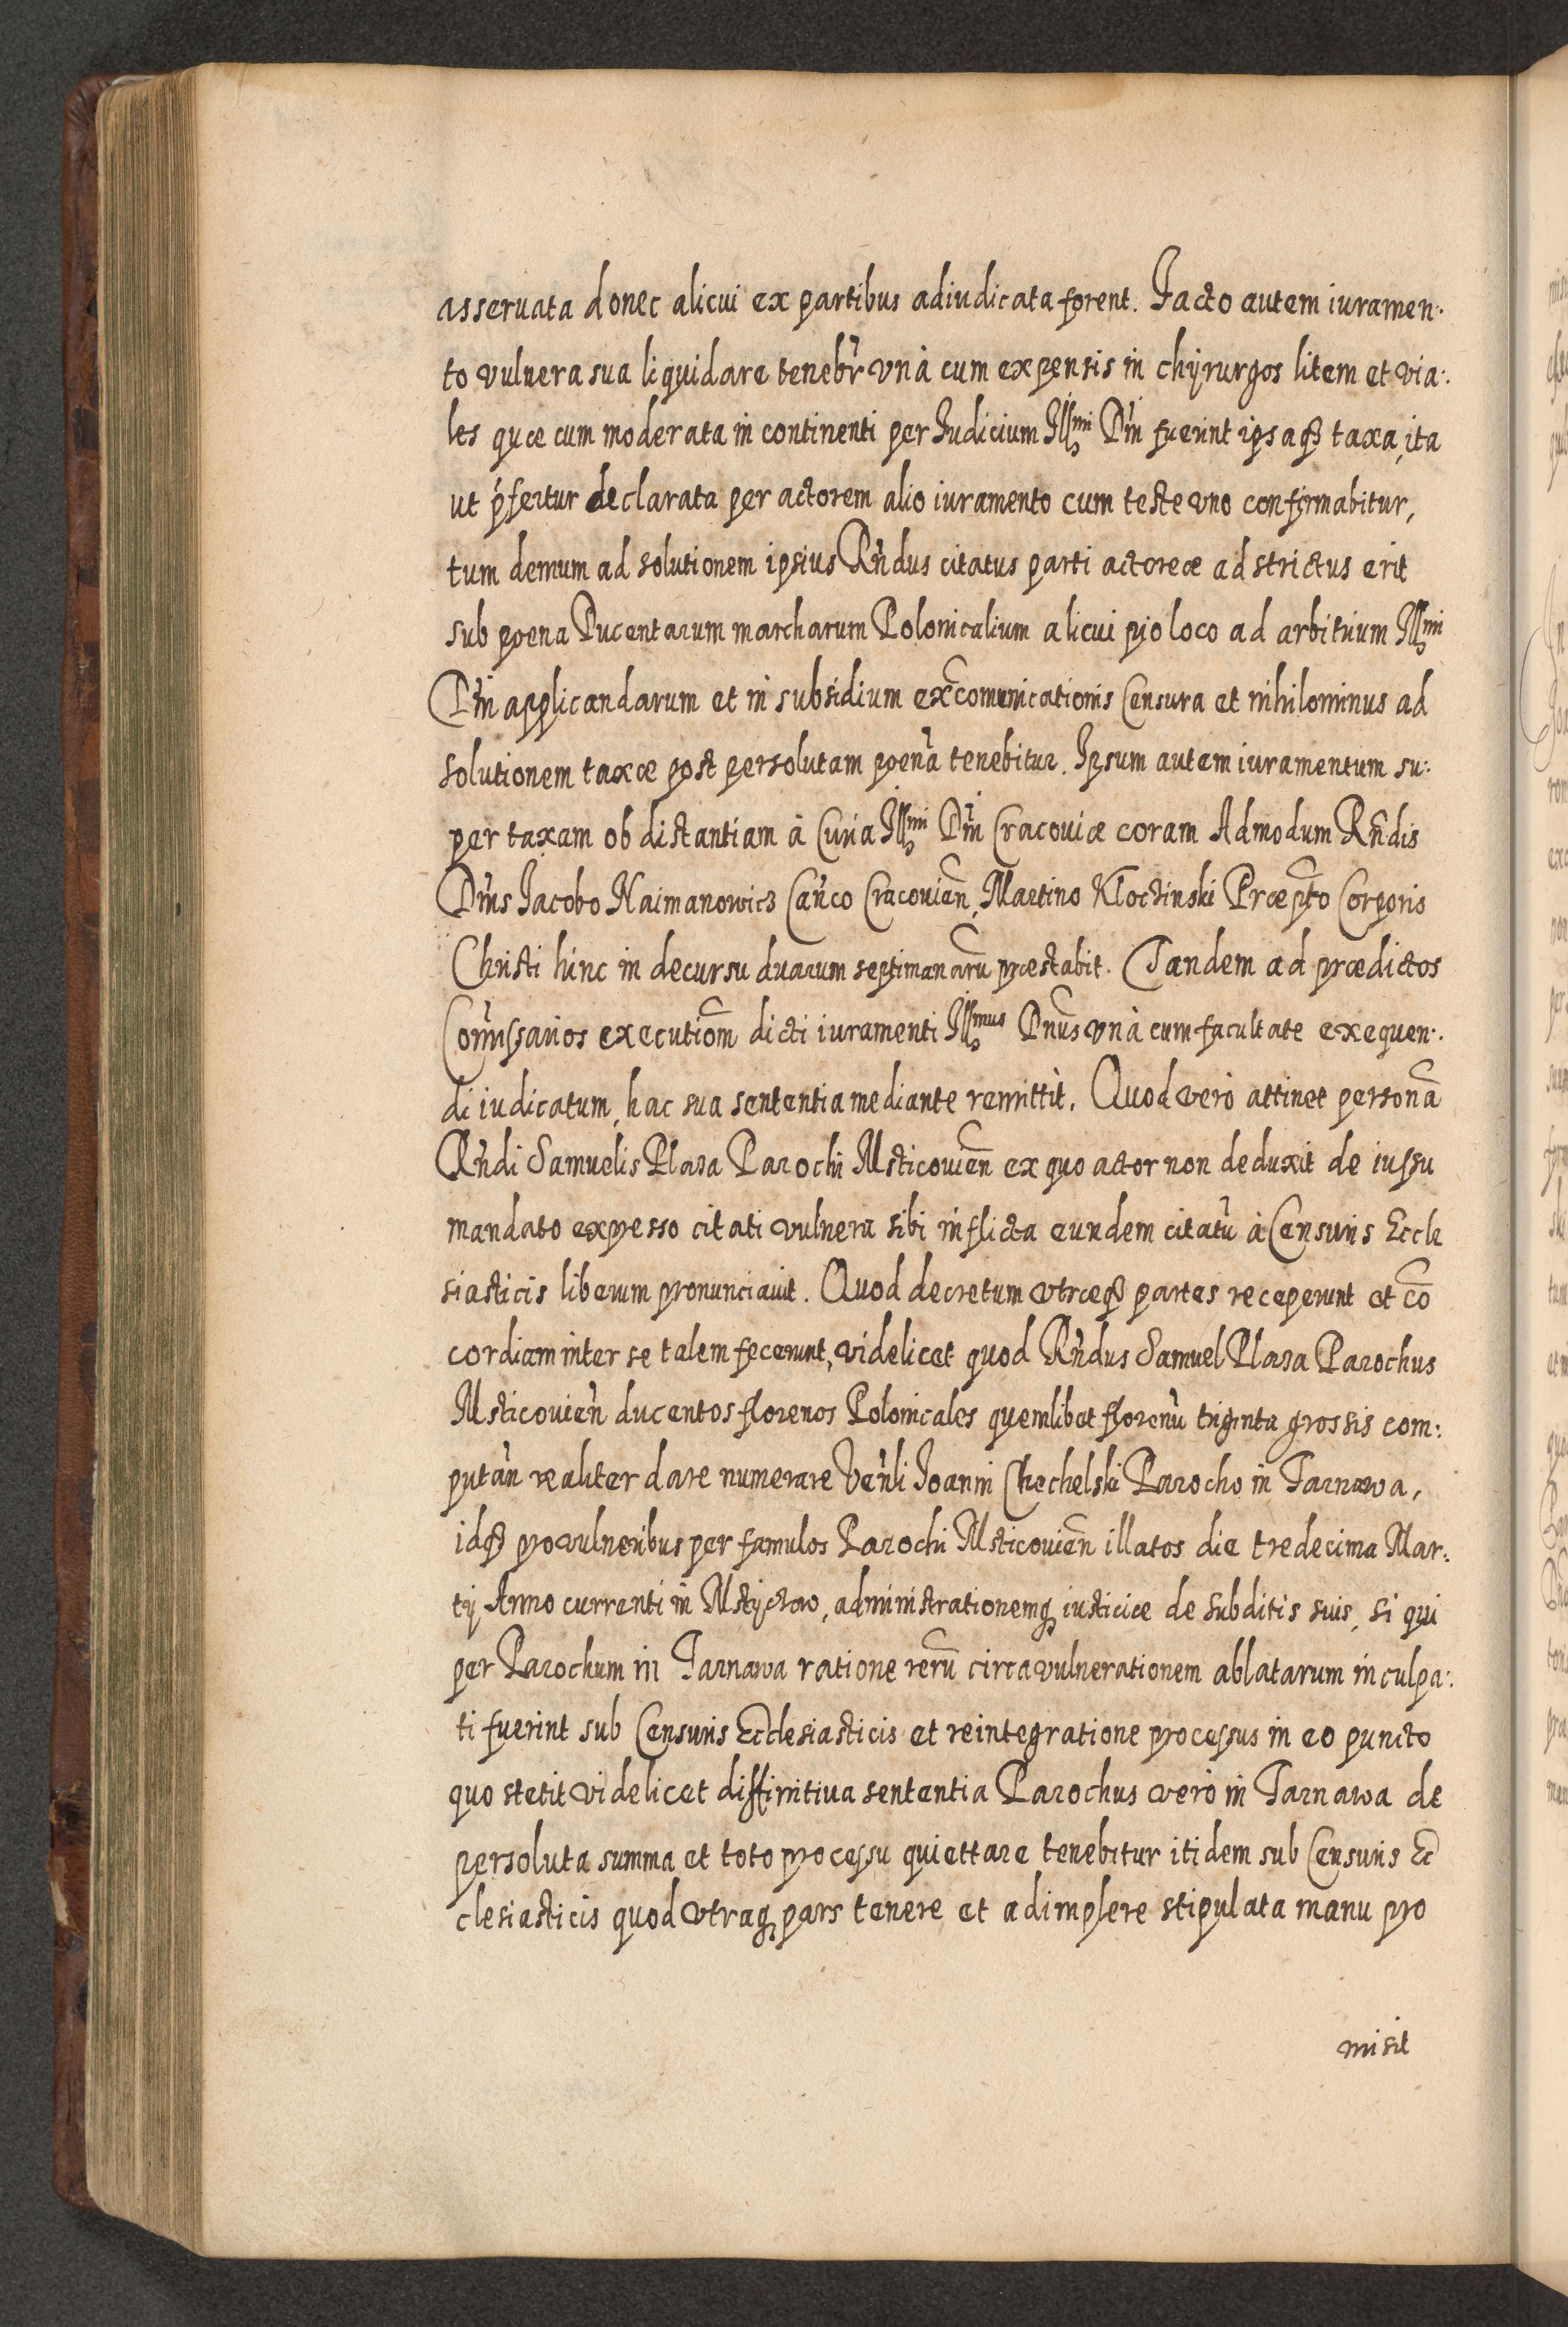 asseruata donec alicui ex partibus adiudicata forent. Facto autem iuramen:
to vulnera sua liquidare tenebr̃ vnà cum expensis in chyrurgos litem et via:
les quæ cum moderata in continenti per Iudicium Illmi Dñi fuerint ipsaq taxa, ita
ut p̃fertur declarata per actorem alio iuramento cum teste vno confirmabitur,
tum demum ad solutionem ipsius Rñdus citatus parti actoreæ adstrictus erit
sub poena Ducentarum marcharum Polonicalium alicui pio loco ad arbitrium Illmi
Dñi applicandarum et in subsidium excomunicationis Censura et nihilominus ad
solutionem taxæ post persolutam poenã tenebitur. Ipsum autem iuramentum su:
per taxam ob distantiam à Curia Illmi Dñi Cracouiæ coram Admodum Rñdis
Dñis Iacobo Naimanowicz Cañco Cracouien̄, Martino Kloczinski Præpto Corporis
Christi hinc in decursu duarum septimanarū præstabit. Tandem ad prædictos
Com̃issarios executiom̄ dicti iuramenti Illmus Dnus vnà cum facultate exequen:
di iudicatum, hac sua sententia mediante remittit. Quod vero attinet personā
Rñdi Samuelis Plaza Parochi Msticouien̄ ex quo actor non deduxit de iussu
mandato expresso citati vulnera sibi inflicta eundem citatū à Censuris Eccle
siasticis liberum pronunciauit. Quod decretum vtræq partes receperunt et cō
cordiam inter se talem fecerunt, videlicet quod Rñdus Samuel Plaza Parochus
Msticouien̄ ducentos florenos Polonicales quemlibet florenū triginta grossis com:
putañ realiter dare numerare Veñli Ioanni Chechelski Parocho in Tarnawa,
idq pro vulneribus per famulos Parochi Msticouien̄ illatos die tredecima Mar:
tij Anno currenti in Mstyczow, administrationemq iusticiæ de subditis suis, si qui
per Parochum in Tarnawa ratione rerū circa vulnerationem ablatarum inculpa:
ti fuerint sub Censuris Ecclesiasticis et reintegratione processus in eo puncto
quo stetit videlicet diffinitiua sententia Parochus vero in Tarnawa de
persoluta summa et toto processu quiettare tenebitur itidem sub Censuris Ec
clesiasticis quod vtraq pars tenere et adimplere stipulata manu pro
misit